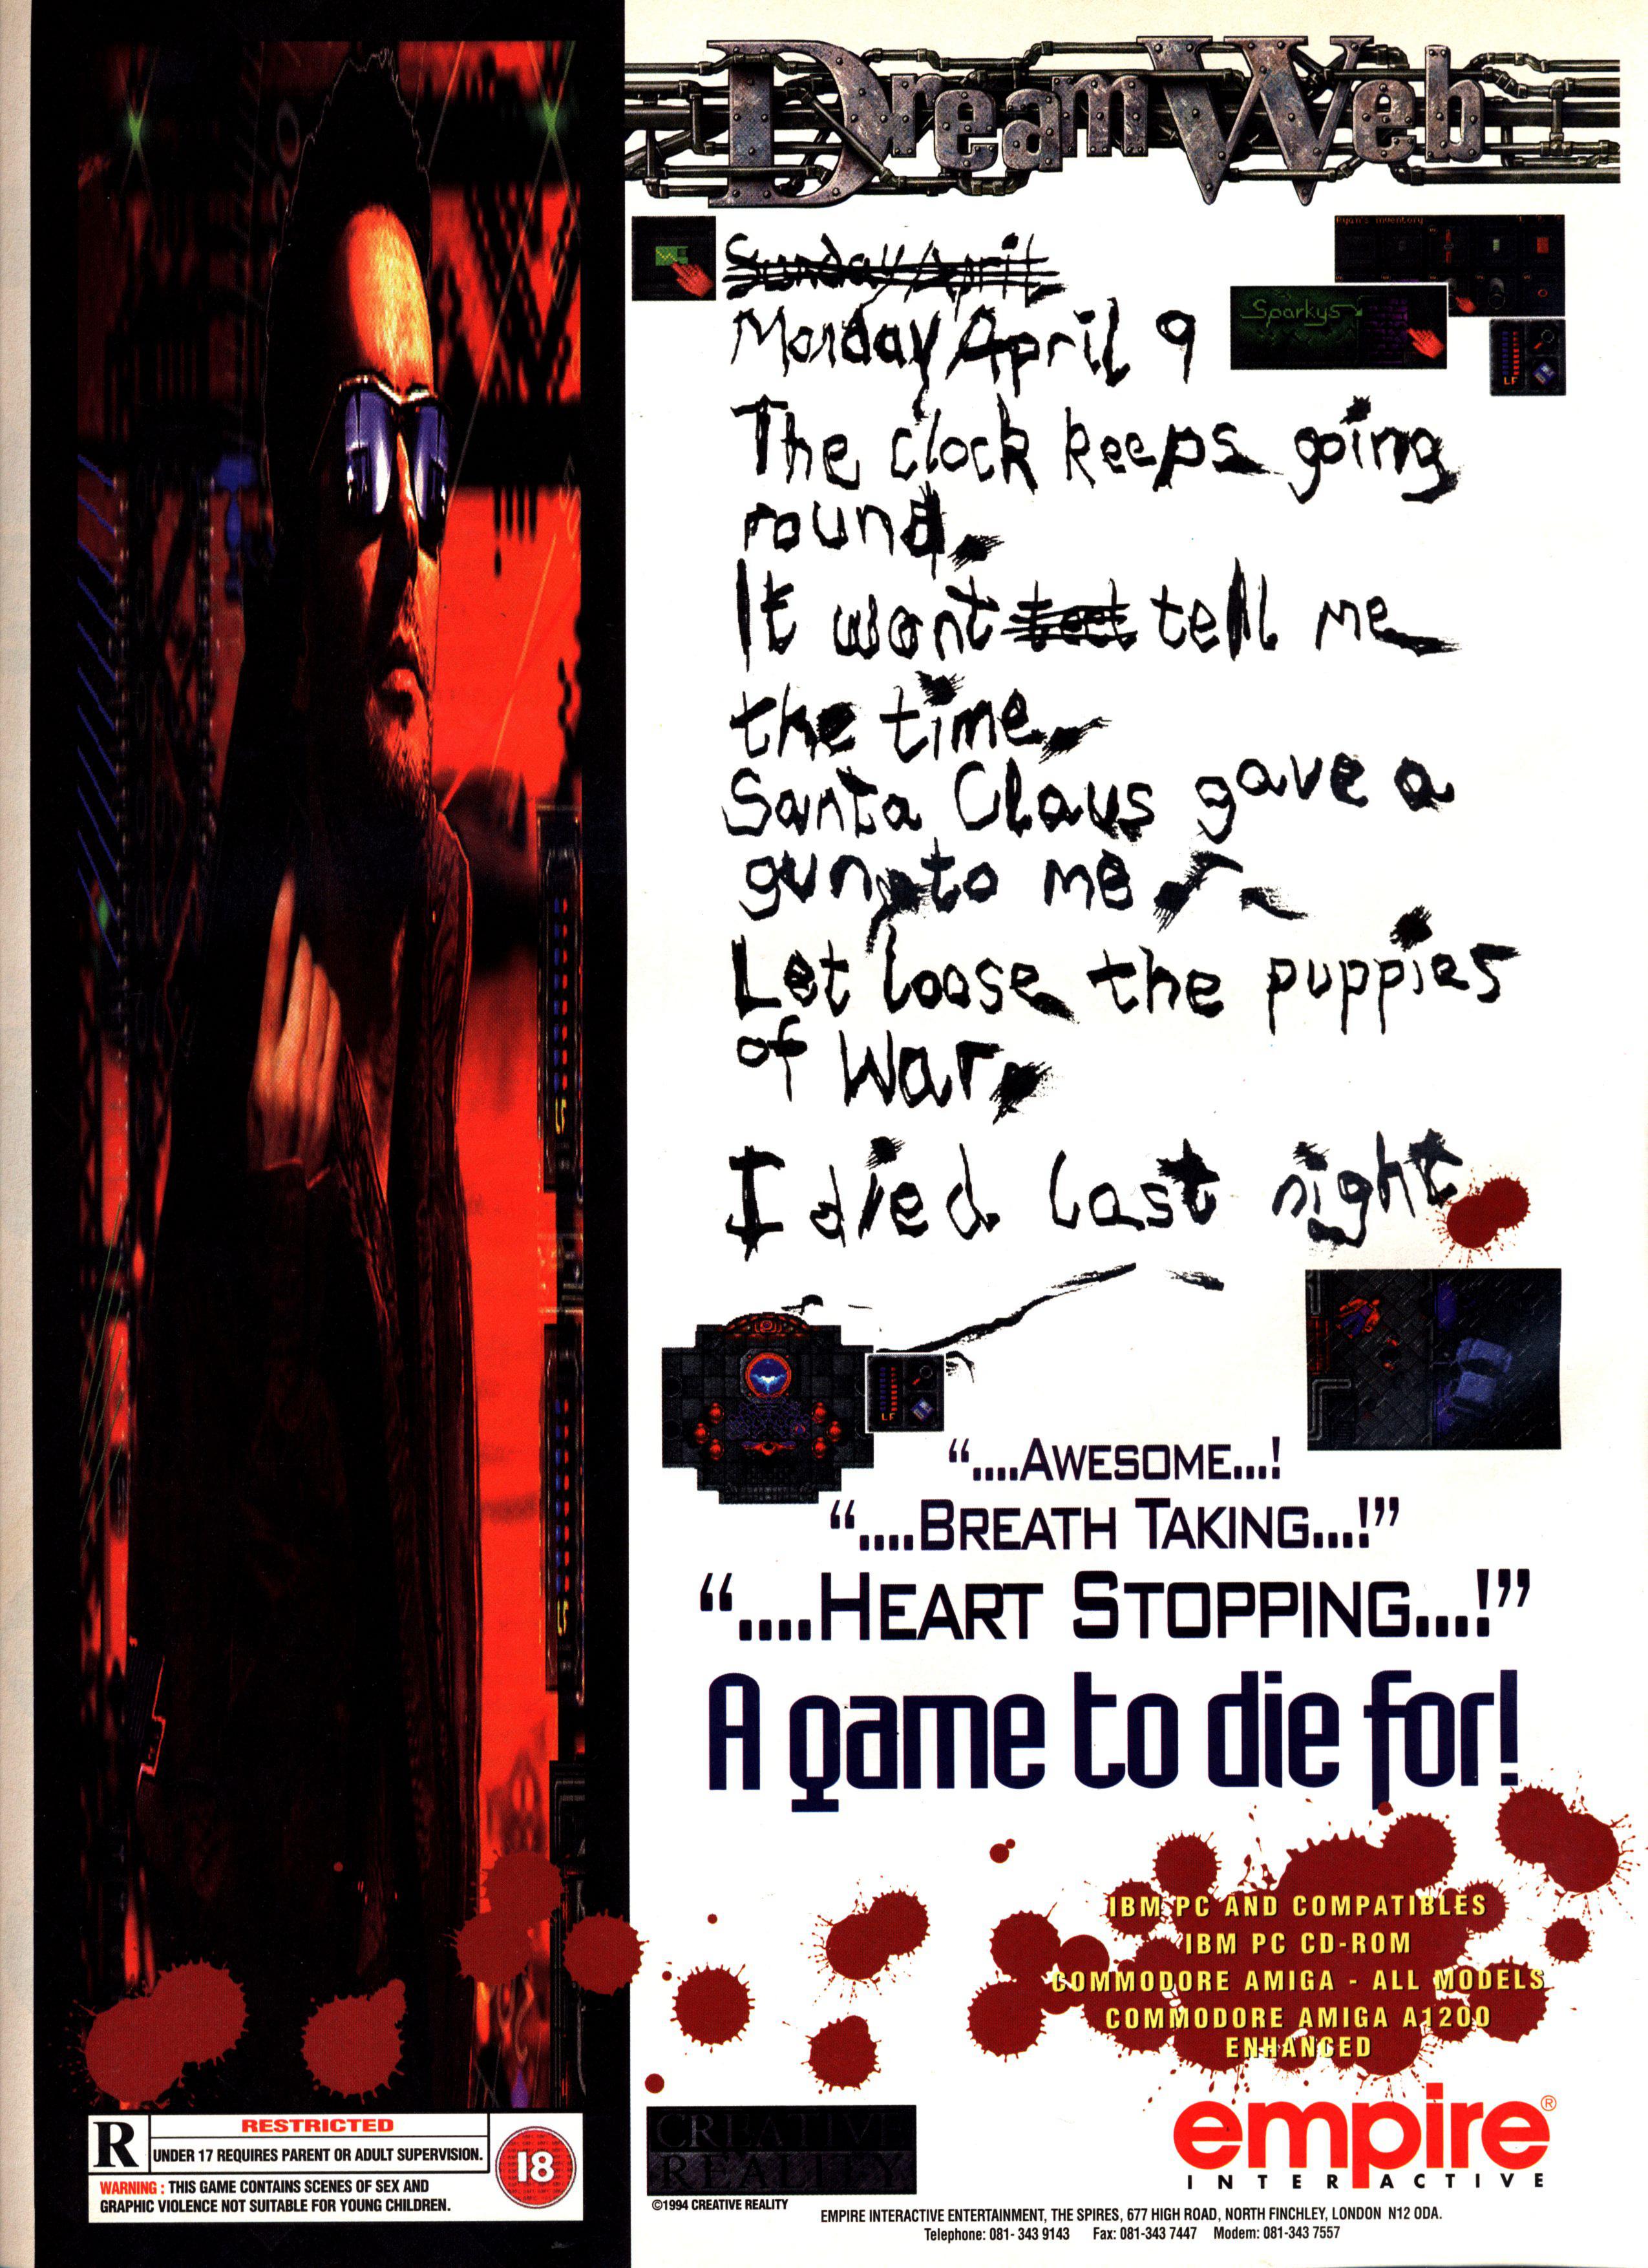 DreamWeb
Ryan's inventory
Sparkys
LF
Sunday April
Monday April 9
The clock keeps going
round.
It wont teel tell me
the time.
Santa Claus gave a
gun to me
Let loose the puppies
of War.
I died last night
LF
“....AWESOME...!
“....BREATH TAKING...!”
“....HEART STOPPING...!”
A game to die for!
IBM PC AND COMPATIBLES
IBM PC CD-ROM
COMMODORE AMIGA - ALL MODELS
COMMODORE AMIGA A1200
ENHANCED
R
RESTRICTED
UNDER 17 REQUIRES PARENT OR ADULT SUPERVISION.
WARNING : THIS GAME CONTAINS SCENES OF SEX AND
GRAPHIC VIOLENCE NOT SUITABLE FOR YOUNG CHILDREN.
18
CREATIVE
REALITY
©1994 CREATIVE REALITY
empire®
INTERACTIVE
EMPIRE INTERACTIVE ENTERTAINMENT, THE SPIRES, 677 HIGH ROAD, NORTH FINCHLEY, LONDON N12 ODA.
Telephone: 081- 343 9143 Fax: 081-343 7447 Modem: 081-343 7557